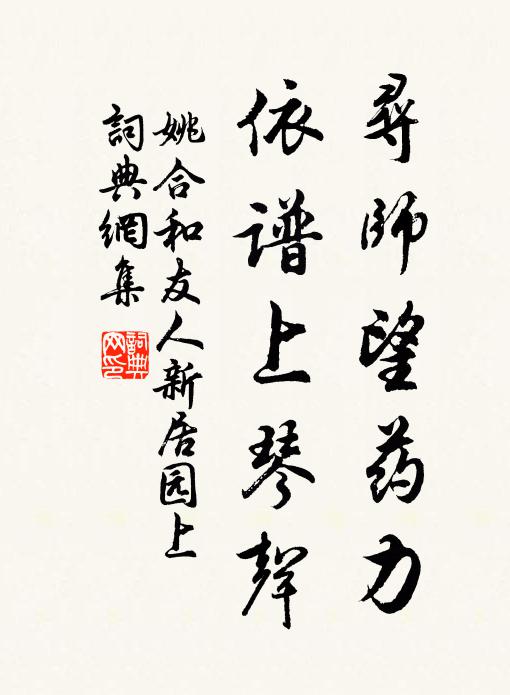 尋師望药力
依谱上琴聲
姚合和友人新居园上
詞典網集
詞典网印